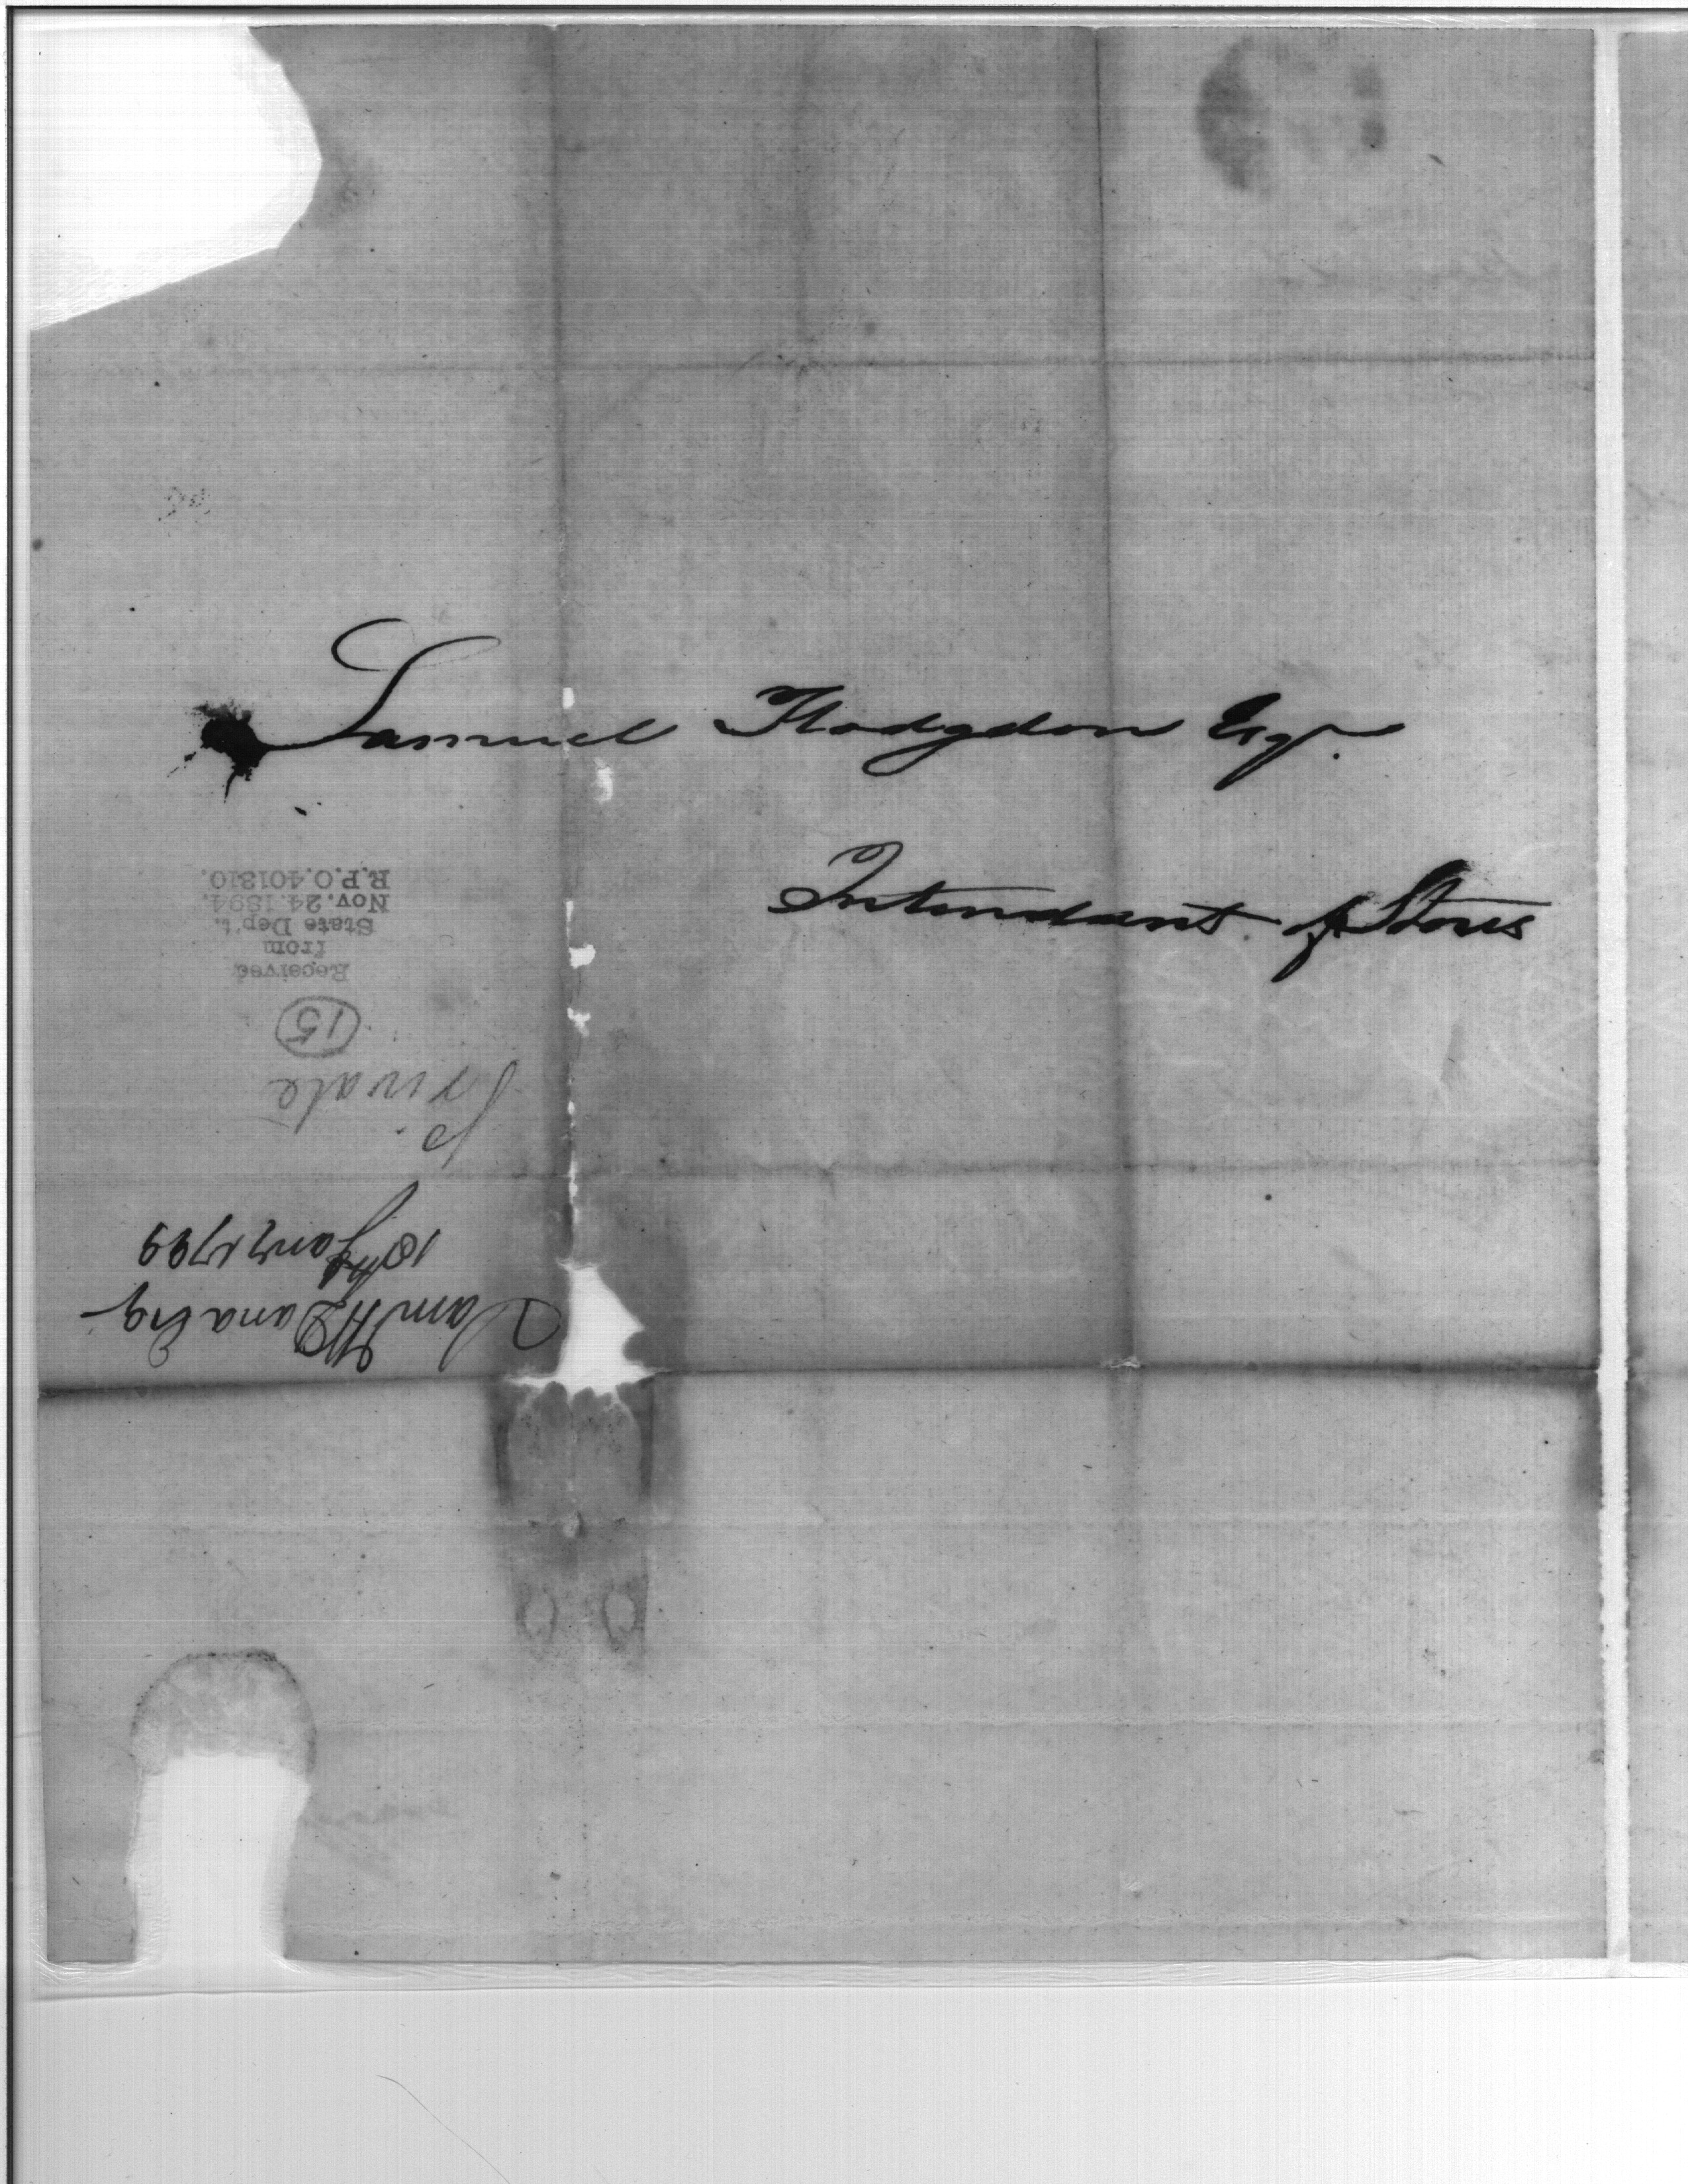 Samuel Hodgdon Esqr.
Intendant of Stores
Saml W Dana Esq
18th Jany 1799
Private
15
Received
from
State Dep't.
Nov. 24. 1894.
R.P.O. 401310.